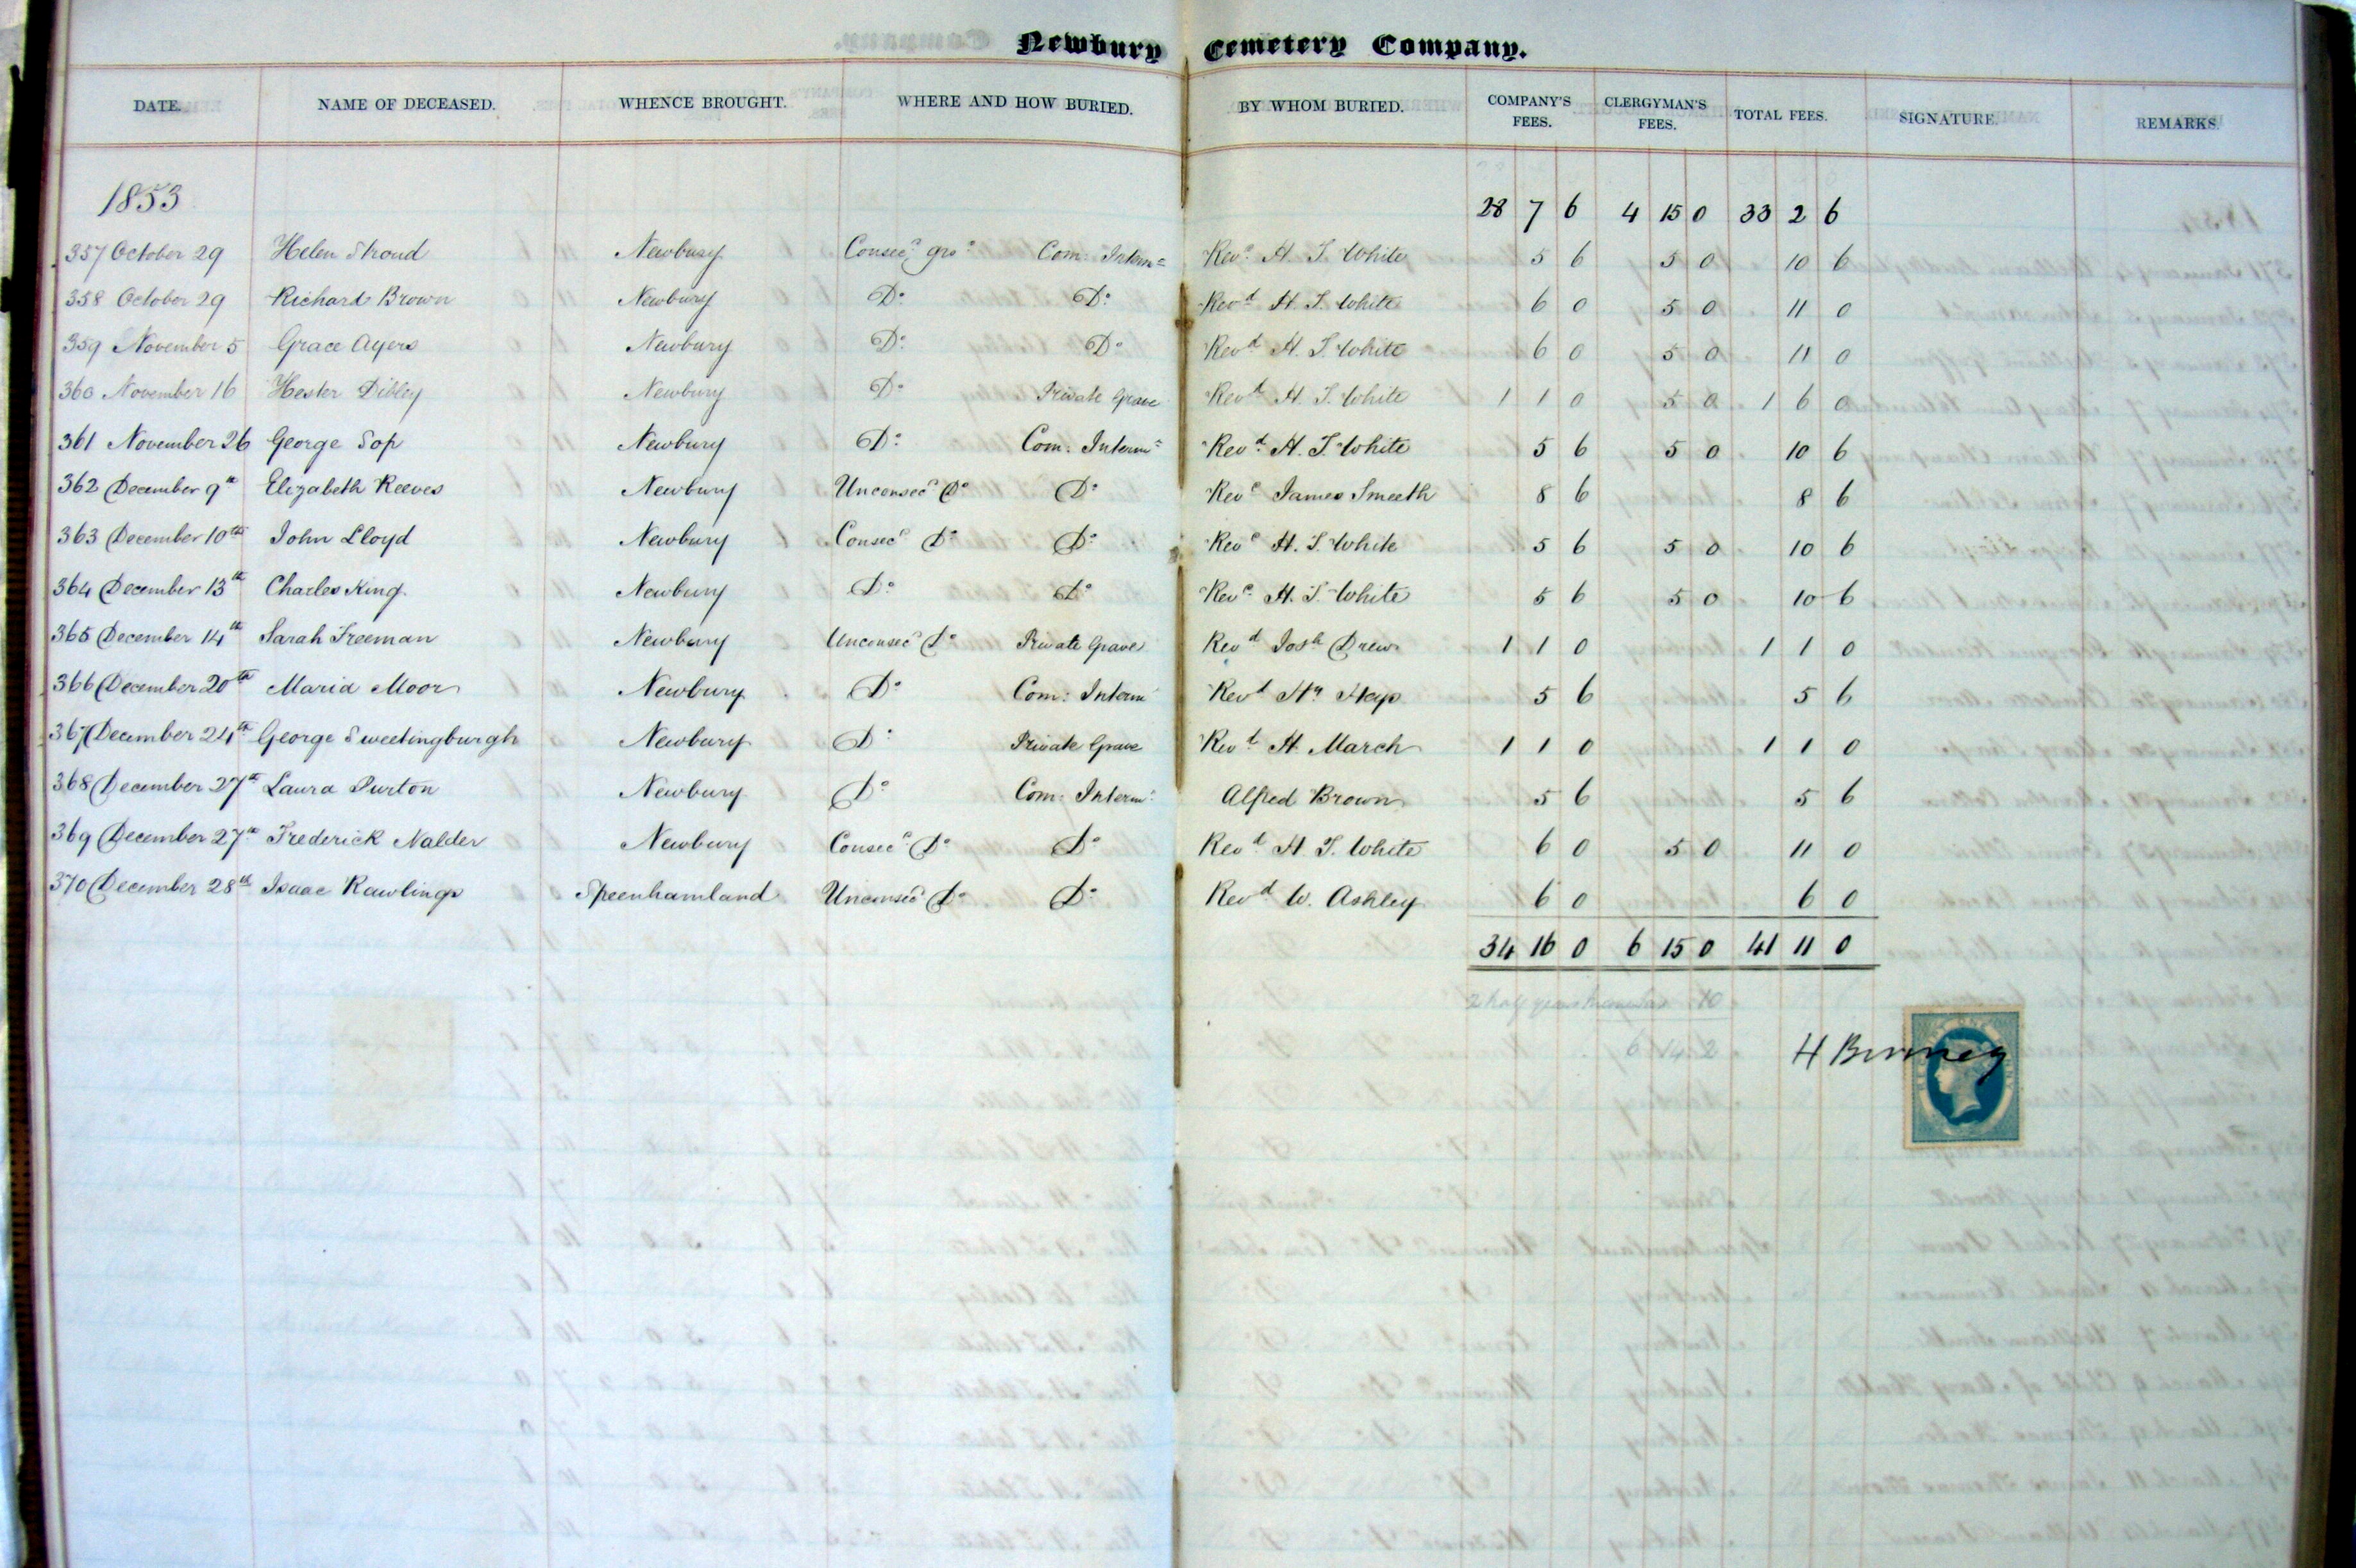 Newbury Cemetery Company.
DATE. NAME OF DECEASED. WHENCE BROUGHT. WHERE AND HOW BURIED. BY WHOM BURIED. COMPANY'S FEES. CLERGYMAN'S FEES. TOTAL FEES. SIGNATURE. REMARKS.
1853 28 7 6 4 15 0 33 2 6
357 October 29 Helen Stroud Newbury Consecd gro: Com: Interm= Revd H. T. White 5 6 5 0 10 6
358 October 29 Richard Brown Newbury Do Do Revd H. T. White 6 0 5 0 11 0
359 November 5 Grace Ayers Newbury Do Do Revd H. T. White 6 0 5 0 11 0
360 November 16 Hester Dibley Newbury Do Private Grave Revd H. T. White 1 1 0 5 0 1 6 0
361 November 26 George Sop Newbury Do Com: Intermt Revd H. T. White 5 6 5 0 10 6
362 December 9th Elizabeth Reeves Newbury Unconsecd Do Do Revd James Smeeth 8 6 8 6
363 December 10th John Lloyd Newbury Consecd Do Do Revd H. T. White 5 6 5 0 10 6
364 December 13th Charles King. Newbury Do Do Revd H. T. White 5 6 5 0 10 6
365 December 14th Sarah Freeman Newbury Unconsecd Do Private Grave Revd Josh Drew 1 1 0 1 1 0
366 December 20th Maria Moor Newbury Do Com: Interm Revd 5 6 5 6
367 December 24th George Sweetingburgh Newbury Do Private Grave Revd H. March 1 1 0 1 1 0
368 December 27th Laura Purton Newbury Do Com: Interm: Alfred Brown 5 6 5 6
369 December 27th Frederick Nalder Newbury Consecd Do Do Revd H. T. White 6 0 5 0 11 0
370 December 28th Isaac Rawlings Speenhamland Unconsecd Do Do Revd W. Ashley 6 0 6 0
34 16 0 6 15 0 41 11 0
2 half years 10
6 14 2
H Binney